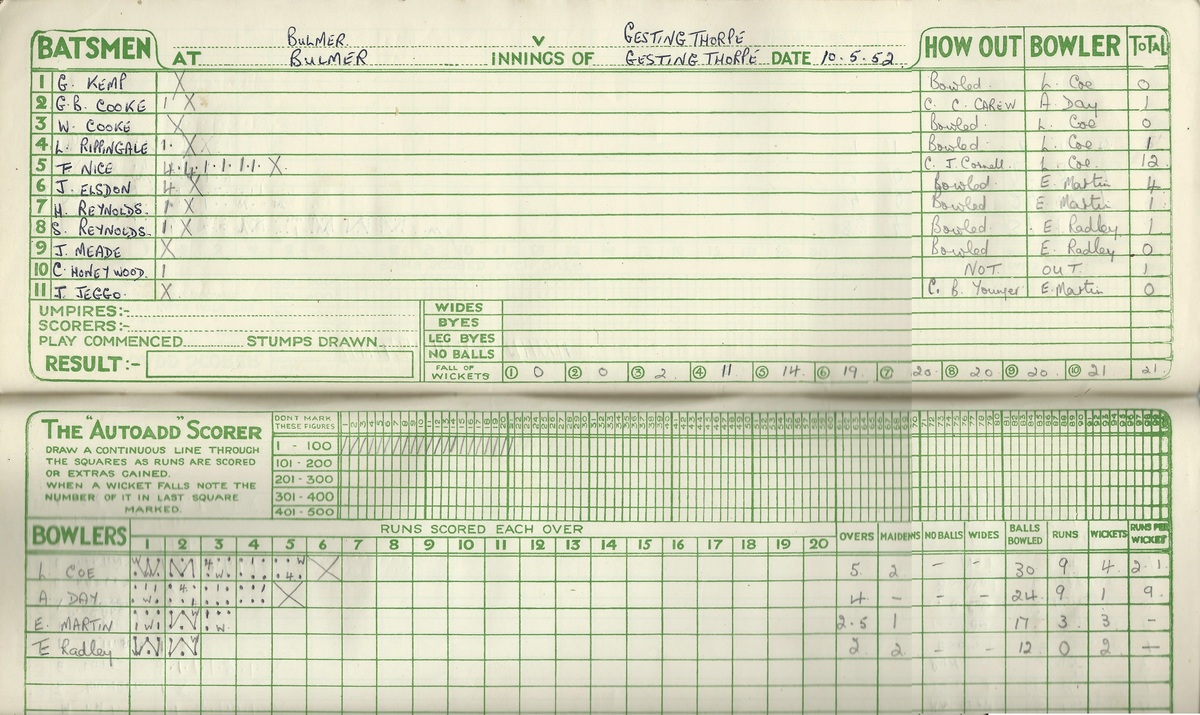 BATSMEN AT BULMER v GESTINGTHORPE HOW OUT BOWLER TOTAL
BULMER INNINGS OF GESTINGTHORPE DATE 10.5.52
1 G. KEMP X Bowled L. Coe 0
2 G.B. COOKE 1 X C. C. CAREW A. Day 1
3 W. COOKE X Bowled L. Coe 0
4 L. RIPPINGALE 1. X Bowled L. Coe 1
5 F. NICE 4.4.1.1.1.1. X C. J. Cornell L. Coe. 12
6 J. ELSDON 4 X Bowled E. Martin 4
7 H. REYNOLDS. 1 X Bowled E. Martin 1
8 S. REYNOLDS. 1. X Bowled E. Radley 1
9 J. MEADE X Bowled E. Radley 0
10 C. HONEYWOOD. 1 NOT OUT 1
11 J. JEGGO. X C. B. Younger E. Martin 0
UMPIRES:- WIDES
SCORERS:- BYES
PLAY COMMENCED STUMPS DRAWN LEG BYES
RESULT:- NO BALLS
FALL OF WICKETS 1 0 2 0 3 2 4 11 5 14 6 19 7 20 8 20 9 20 10 21 21
THE "AUTOADD" SCORER
DRAW A CONTINUOUS LINE THROUGH
THE SQUARES AS RUNS ARE SCORED
OR EXTRAS GAINED.
WHEN A WICKET FALLS NOTE THE
NUMBER OF IT IN LAST SQUARE
MARKED.
DON'T MARK
THESE FIGURES
1 - 100
101 - 200
201 - 300
301 - 400
401 - 500
BOWLERS RUNS SCORED EACH OVER OVERS MAIDENS NO BALLS WIDES BALLS BOWLED RUNS WICKETS RUNS PER WICKET
1 2 3 4 5 6 7 8 9 10 11 12 13 14 15 16 17 18 19 20
L. COE 5. 2 - - 30 9. 4 2.1
A. DAY. 4 - - - 24 9 1 9.
E. MARTIN 2.5 1 17 3 3 -
E Radley 2 2 - - 12 0 2 -